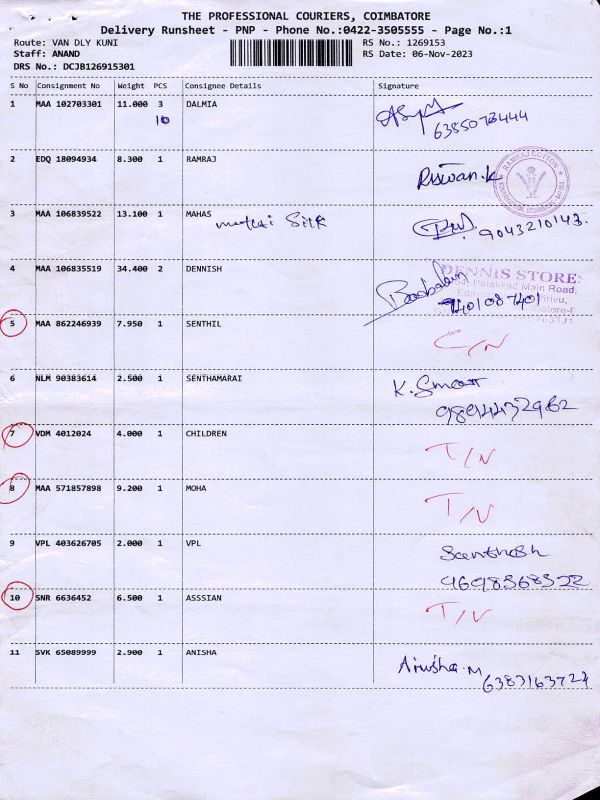 THE PROFESSIONAL COURIERS, COIMBATORE
Delivery Runsheet - PNP - Phone No.:0422-3505555 - Page No.:1
Route: VAN DLY KUNI RS No.: 1269153
Staff: ANAND RS Date: 06-Nov-2023
DRS No.: DCJB126915301
S No Consignment No Weight PCS Consignee Details Signature
1 MAA 102703301 11.000 3 DALMIA
10
2 EDQ 18094934 8.300 1 RAMRAJ Riswan.K
RAMRAJ COTTON
3 MAA 106839522 13.100 1 MAHAS
Silk 9043210143.
4 MAA 106835519 34.400 2 DENNISH
DENNIS STORES
Palakkad Main Road,
9401087401
5 MAA 862246939 7.950 1 SENTHIL
6 NLM 90383614 2.500 1 SENTHAMARAI
9894432962
7 VDM 4012024 4.000 1 CHILDREN T/N
8 MAA 571857898 9.200 1 MOHA T/N
9 VPL 403626705 2.000 1 VPL Santhosh
9698568522
10 SNR 6636452 6.500 1 ASSSIAN T/N
11 SVK 65089999 2.900 1 ANISHA Anusha.M
6383163724